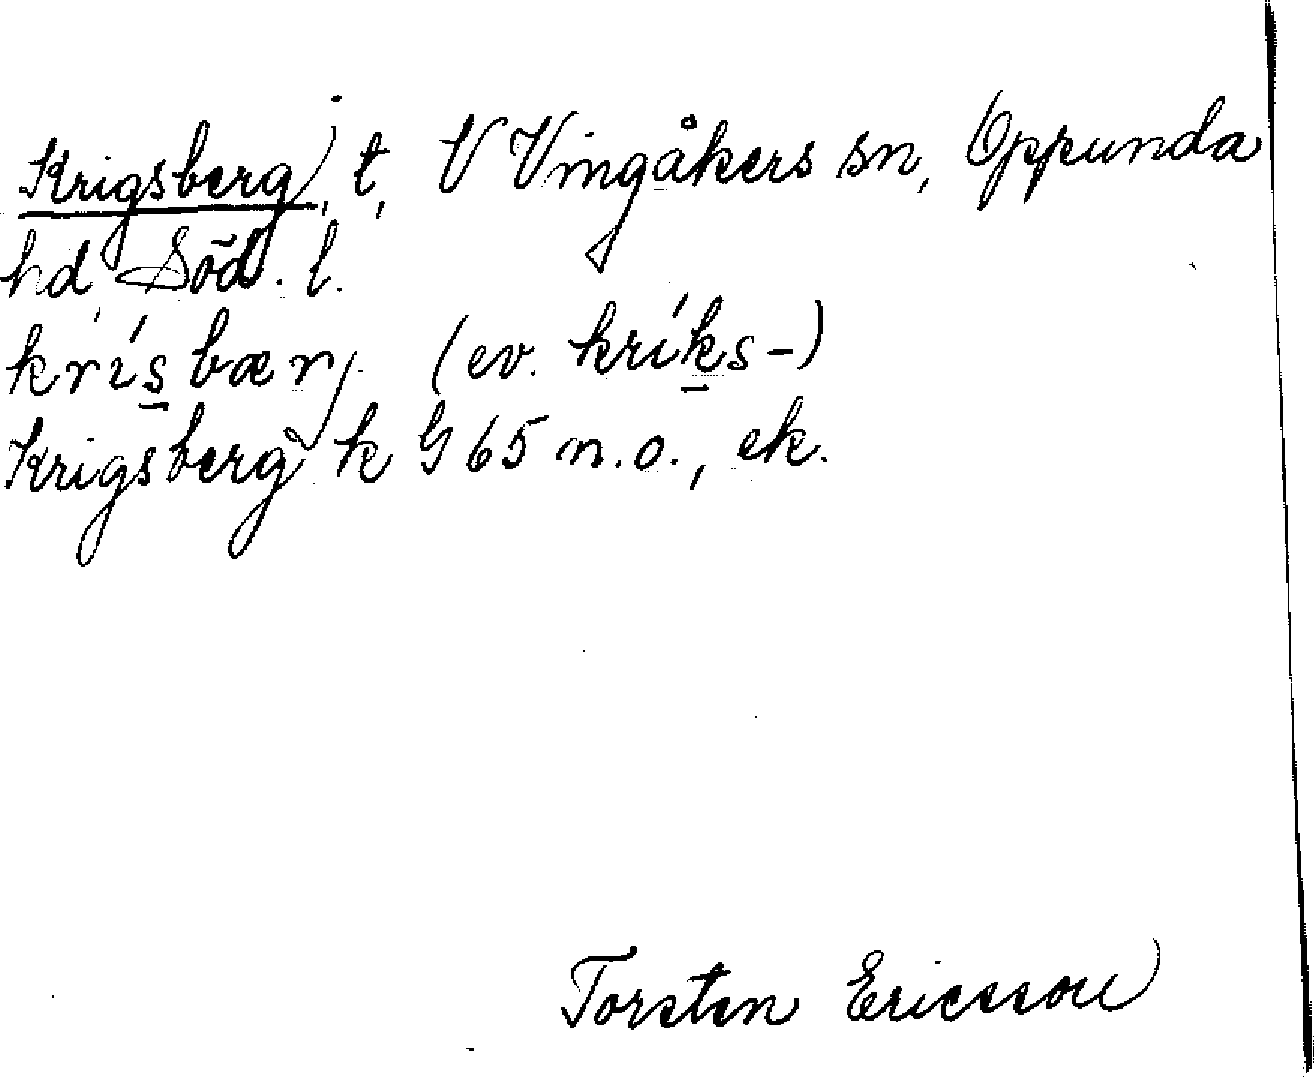 Krigsberg, t, V Vingåkers sn, Oppunda
hd, Söd. l.
krí̱sbærj. (ev. kríḵs-)
Krigsberg k G 65 n.o., ek.
Torsten Ericsson